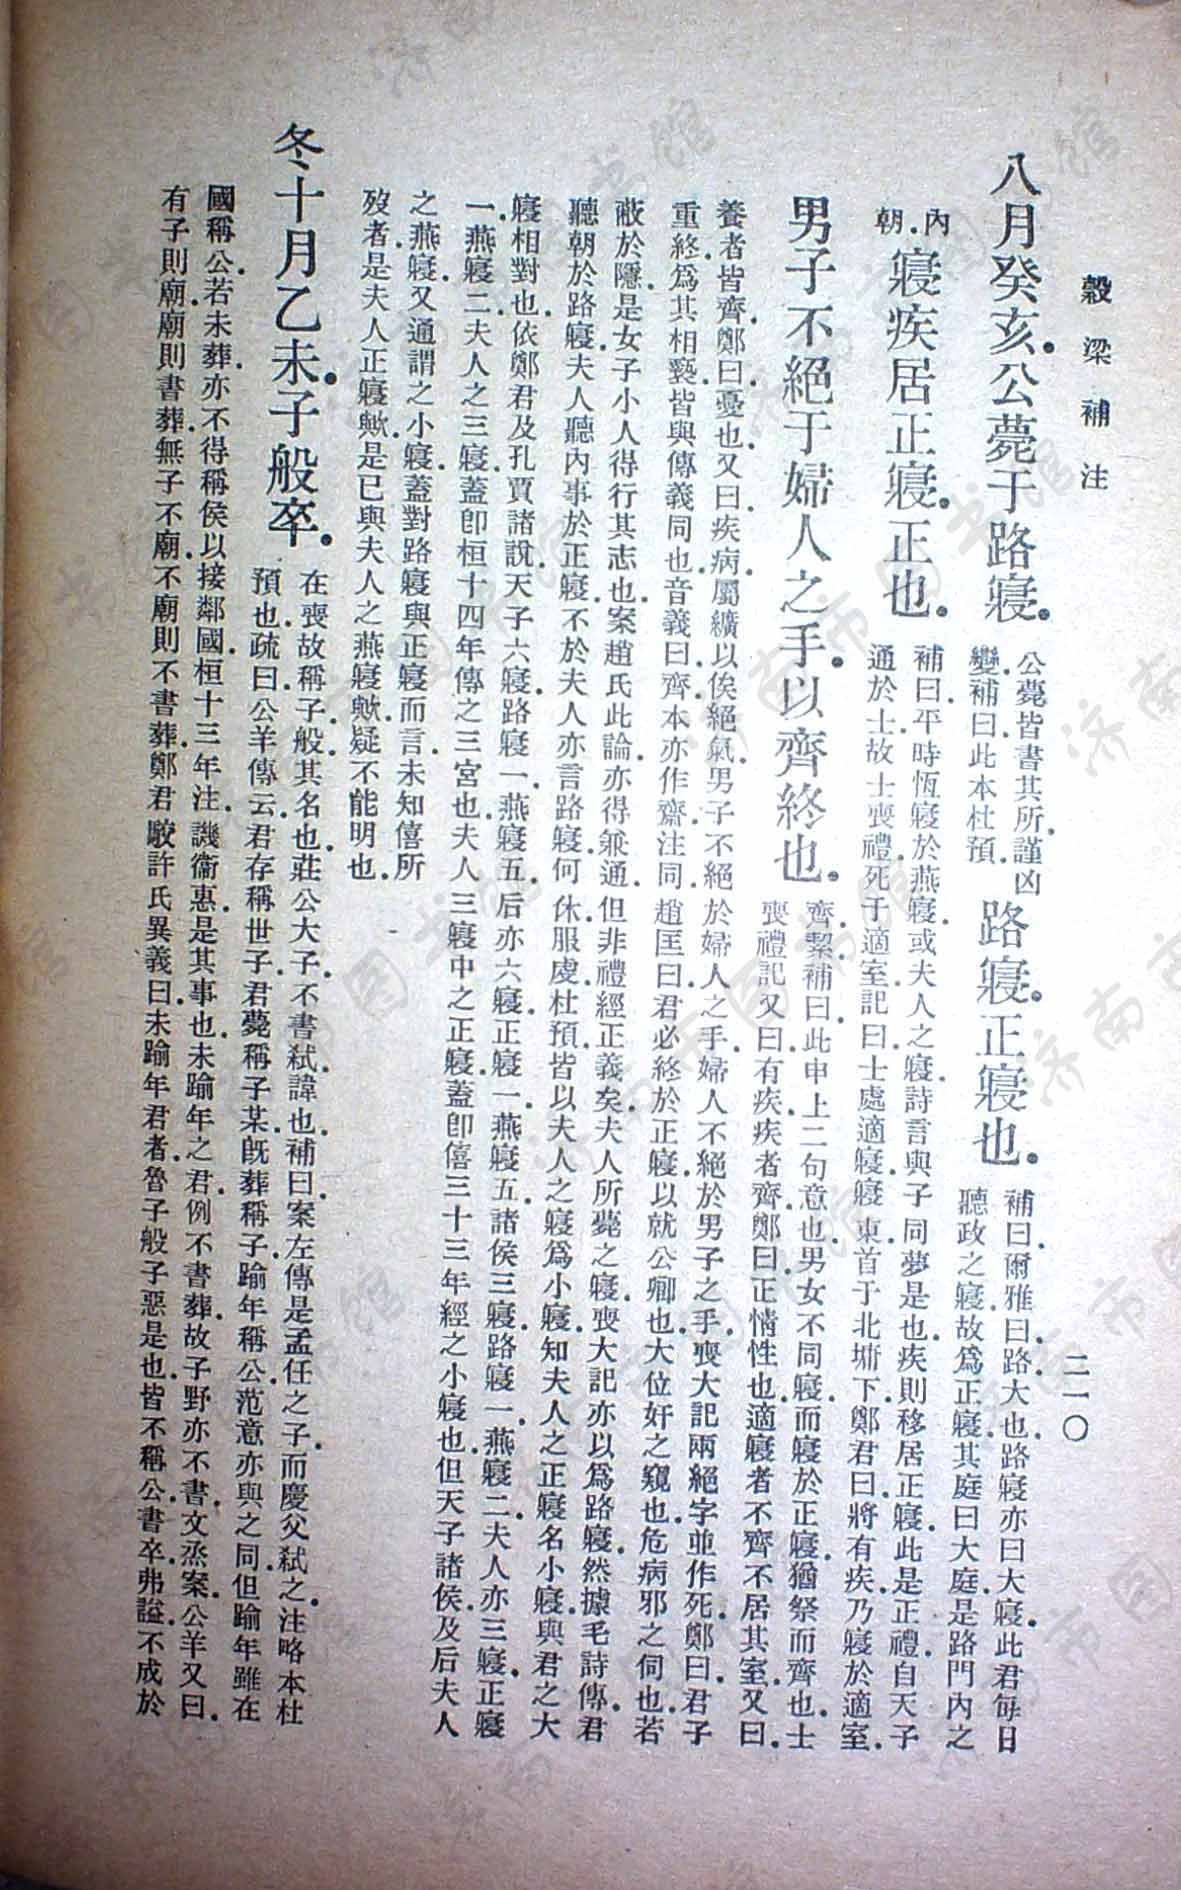 穀梁補注
二一〇
八月癸亥公薨于路寢
公薨皆書其所謹凶
變補曰此本杜預
路寢正寢也
補曰爾雅曰路大也路寢亦曰大寢此君每日
聽政之寢故爲正寢其庭曰大庭是路門內之
內
朝
寢疾居正寢正也
補曰平時恆寢於燕寢或夫人之寢詩言與子同夢是也疾則移居正寢此是正禮自天子
通於士故士喪禮死于適室記曰士處適寢寢東首于北墉下鄭君曰將有疾乃寢於適室
男子不絕于婦人之手以齊終也
齊絜補曰此申上二句意也男女不同寢而寢於正寢猶祭而齊也士
喪禮記又曰有疾疾者齊鄭曰正情性也適寢者不齊不居其室又曰
養者皆齊鄭曰憂也又曰疾病屬纊以俟絕氣男子不絕於婦人之手婦人不絕於男子之手喪大記兩絕字並作死鄭曰君子
重終爲其相褻皆與傳義同也音義曰齊本亦作齋注同趙匡曰君必終於正寢以就公卿也大位奸之窺也危病邪之伺也若
蔽於隱是女子小人得行其志也案趙氏此論亦得兼通但非禮經正義矣夫人所薨之寢喪大記亦以爲路寢然據毛詩傳君
聽朝於路寢夫人聽內事於正寢不於夫人亦言路寢何休服虔杜預皆以夫人之寢爲小寢知夫人之正寢名小寢與君之大
寢相對也依鄭君及孔賈諸說天子六寢路寢一燕寢五后亦六寢正寢一燕寢五諸侯三寢路寢一燕寢二夫人亦三寢正寢
一燕寢二夫人之三寢蓋卽桓十四年傳之三宮也夫人三寢中之正寢蓋卽僖三十三年經之小寢也但天子諸侯及后夫人
之燕寢又通謂之小寢蓋對路寢與正寢而言未知僖所
歿者是夫人正寢歟是已與夫人之燕寢歟疑不能明也
冬十月乙未子般卒
在喪故稱子般其名也莊公大子不書弒諱也補曰案左傳是孟任之子而慶父弒之注略本杜
預也疏曰公羊傳云君存稱世子君薨稱子某旣葬稱子踰年稱公范意亦與之同但踰年雖在
國稱公若未葬亦不得稱侯以接鄰國桓十三年注譏衞惠是其事也未踰年之君例不書葬故子野亦不書文烝案公羊又曰
有子則廟廟則書葬無子不廟不廟則不書葬鄭君駮許氏異義曰未踰年君者魯子般子惡是也皆不稱公書卒弗謚不成於